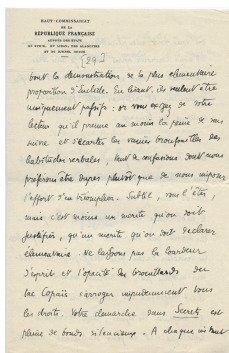 HAUT-COMMISSARIAT
DE LA
RÉPUBLIQUE FRANÇAISE
AUPRÈS DES ÉTATS
DE SYRIE, DU LIBAN, DES ALAOUITES
ET DU DJEBEL DRUZE
[29]
tout la démonstration de la plus élémentaire
proposition d'Euclide. En lisant, ils veulent être
uniquement passifs : or vous exigez de votre
lecteur qu'il prenne au moins la peine de vous
suivre et d'écarter les vieilles broussailles des
habitudes verbales, tant de confusions dont nous
préférons être dupes plutôt que de nous imposer
l'effort d'en triompher. Subtil, vous l'êtes,
mais c'est moins un mérite qu'on doit
justifier, qu'un mérite qu'on doit déclarer
élémentaire. Ne laissons pas la lourdeur
d'esprit et l'opacité des brouillards du
lac Copaïs s'arroger impudemment tous
les droits. Votre démarche dans Secrets est
pleine de bonds silencieux. A chaque